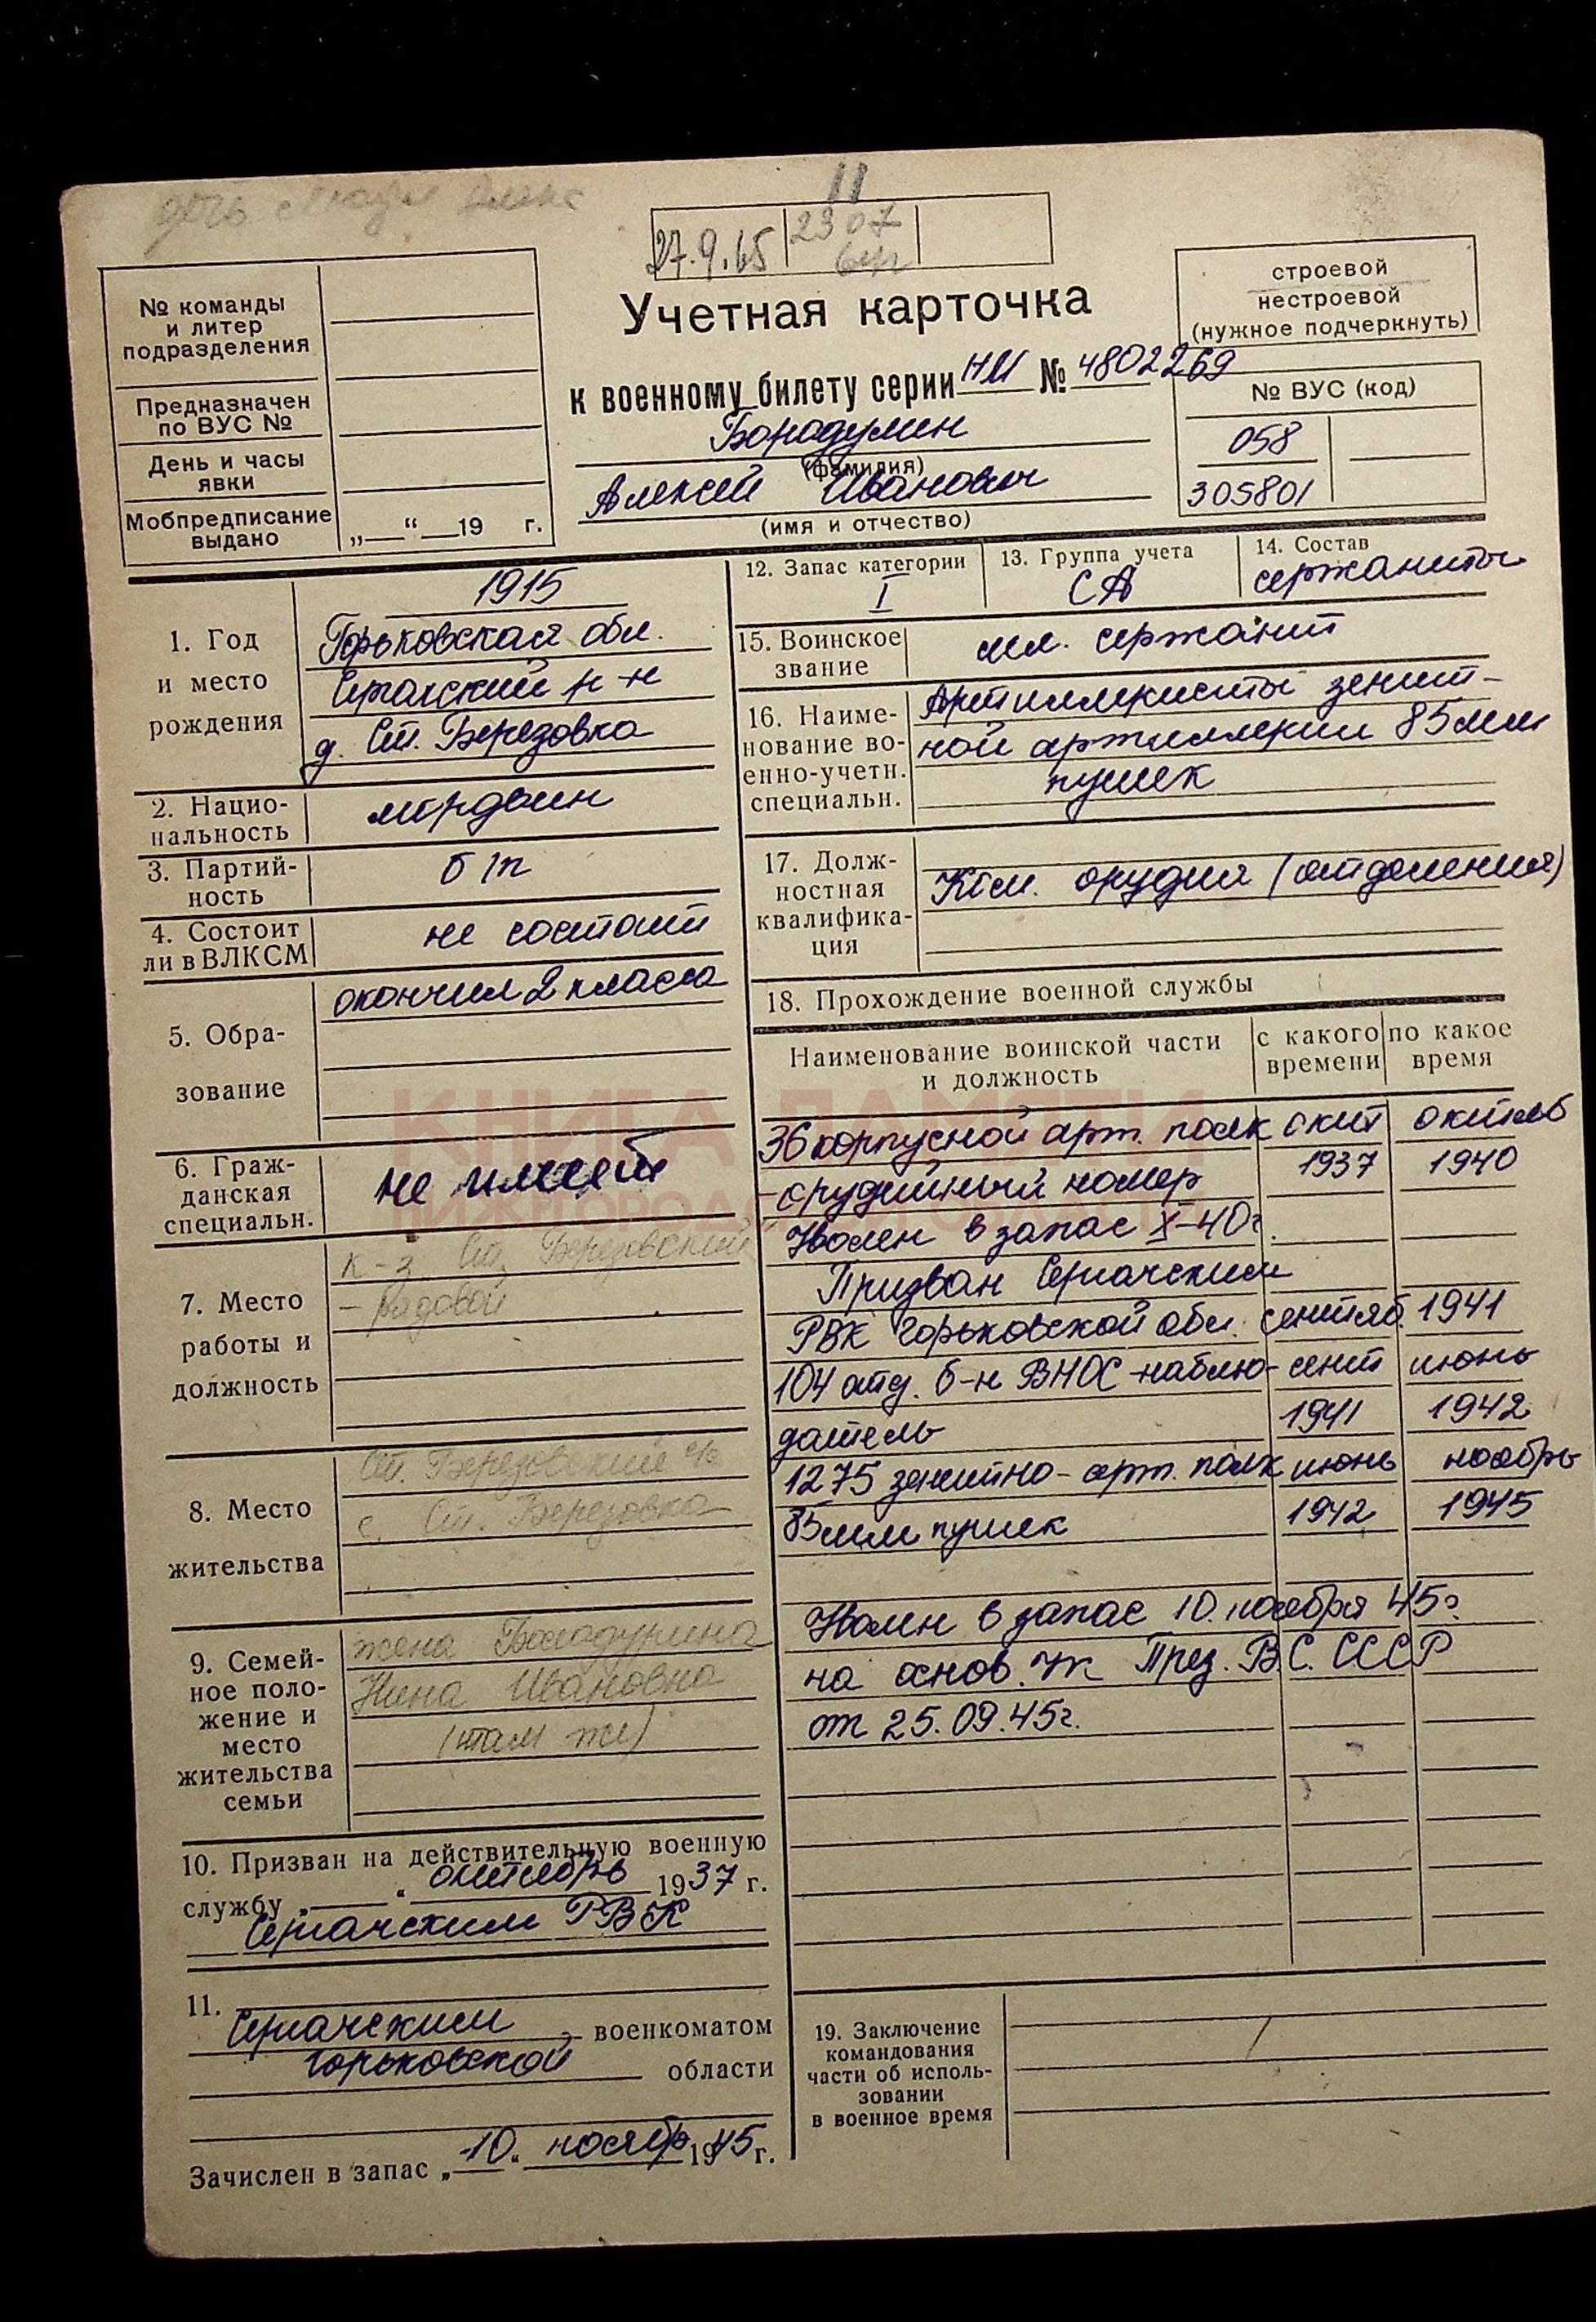 дочь
11
27.9.65
2307
№ команды
и литер
подразделения
Предназначен
по ВУС №
День и часы
явки
Мобпредписание
выдано
„ “ 19 г.
строевой
нестроевой
(нужное подчеркнуть)
Учетная карточка
к военному билету серии НИ № 4802269
(фамилия)
Алексей Иванович
(имя и отчество)
№ ВУС (код)
058
305801
1. Год
и место
рождения
1915
Горьковская обл.
Сергачский р-н
д. Ст. Березовка
2. Нацио-
нальность
мордвин
3. Партий-
ность
б/п
4. Состоит
ли в ВЛКСМ
не состоит
5. Обра-
зование
окончил 2 класса
6. Граж-
данская
специальн.
не имеет
7. Место
работы и
должность
к-з Ст. Березовский
- рядовой
8. Место
жительства
Ст. Березовский с/с
с. Ст. Березовка
9. Семей-
ное поло-
жение и
место
жительства
семьи
жена
Нина Ивановна
(там же)
10. Призван на действительную военную
службу „ “ октябрь 1937 г.
Сергачским РВК
11.
Сергачским военкоматом
Горьковской области
Зачислен в запас „10“ ноябр 1945 г.
12. Запас категории
I
13. Группа учета
СА
14. Состав
сержанты
15. Воинское
звание
мл. сержант
16. Наиме-
нование во-
енно-учетн.
специальн.
Артиллеристы зенит-
ной артиллерии 85 мм
пушек
17. Долж-
ностная
квалифика-
ция
Ком. орудия (отделения)
18. Прохождение военной службы
Наименование воинской части
и должность
с какого
времени
по какое
время
36 корпусной арт. полк окт октябь
- орудийный номер 1937 1940
Уволен в запас X-40г.
Призван Сергачским
РВК Горьковской обл. сентяб. 1941
104 отд. б-н ВНОС -наблю- сент июнь
датель 1941 1942
1275 зенитно-арт. полк июнь ноябрь
85 мм пушек 1942 1945
Уволен в запас 10. ноября 45г.
на основ. Ук През. В.С. СССР
от 25.09.45г.
19. Заключение
командования
части об исполь-
зовании
в военное время
КНИГА ПАМЯТИ